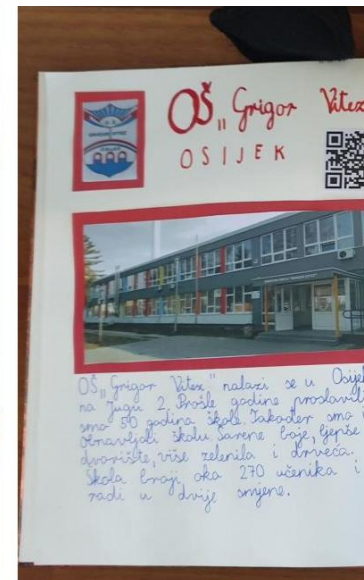 OŠ „Grigor Vitez
OSIJEK
OŠ „Grigor Vitez" nalazi se u Osijek
na Jugu 2. Prošle godine proslavili
smo 50 godina škole. Također smo
obnavljali školu. Šarene boje, ljepše
dvorište, više zelenila i drveća.
Škola broji oko 270 učenika i
radi u dvije smjene.